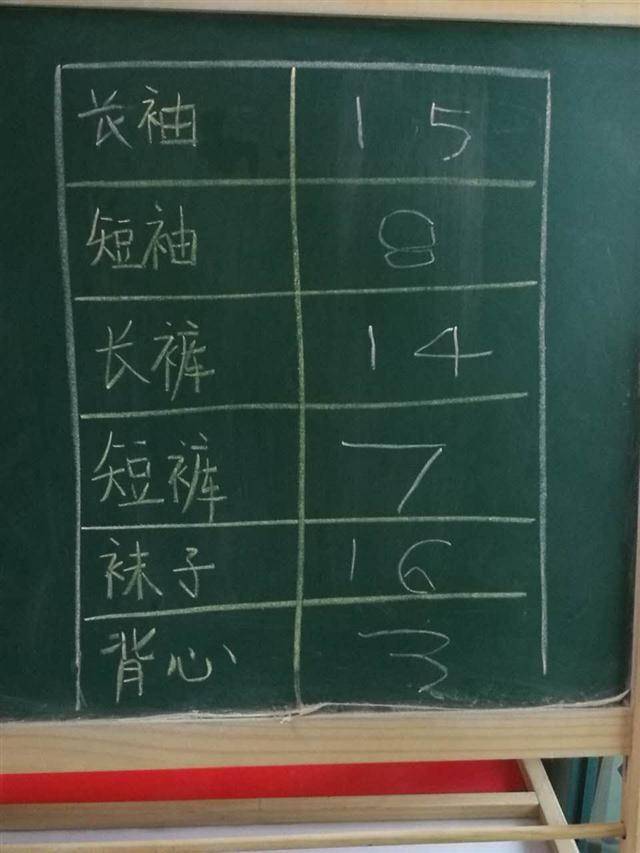 长袖 15
短袖 8
长裤 14
短裤 7
袜子 16
背心 3